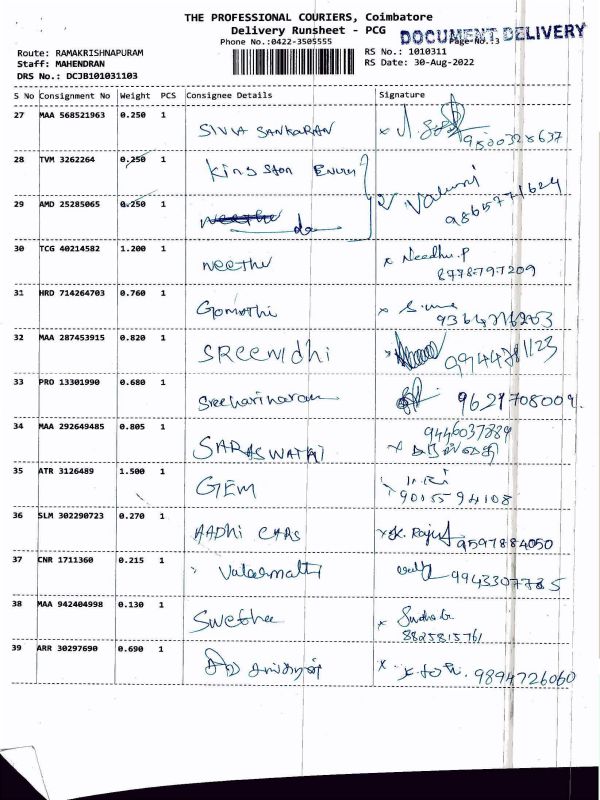 THE PROFESSIONAL COURIERS, Coimbatore
Delivery Runsheet - PCG
DOCUMENT DELIVERY
Phone No.:0422-3505555
Page No.:3
Route: RAMAKRISHNAPURAM
RS No.: 1010311
Staff: MAHENDRAN
RS Date: 30-Aug-2022
DRS No.: DCJB101031103
S No Consignment No Weight PCS Consignee Details Signature
27 MAA 568521963 0.250 1 SIVIA SANKARAN
28 TVM 3262264 0.250 1 Kingston
29 AMD 25285065 0.250 1 Neethu do Valarmi 9865771624
30 TCG 40214582 1.200 1 Neethu x Needhu.P
8778797209
31 HRD 714264703 0.760 1 Gomathi
32 MAA 287453915 0.820 1 SREENIDHI
33 PRO 13301990 0.680 1 Sreehariharan 9629708009
34 MAA 292649485 0.805 1 SARASWATHI
35 ATR 3126489 1.500 1 GEM
9015594108
36 SLM 302290723 0.270 1 AADHI CARS x K. Raju 9597884050
37 CNR 1711360 0.215 1 Valarmathi 9943307785
38 MAA 942404998 0.130 1 Swetha x
8825815761
39 ARR 30297690 0.690 1 x 9894726060